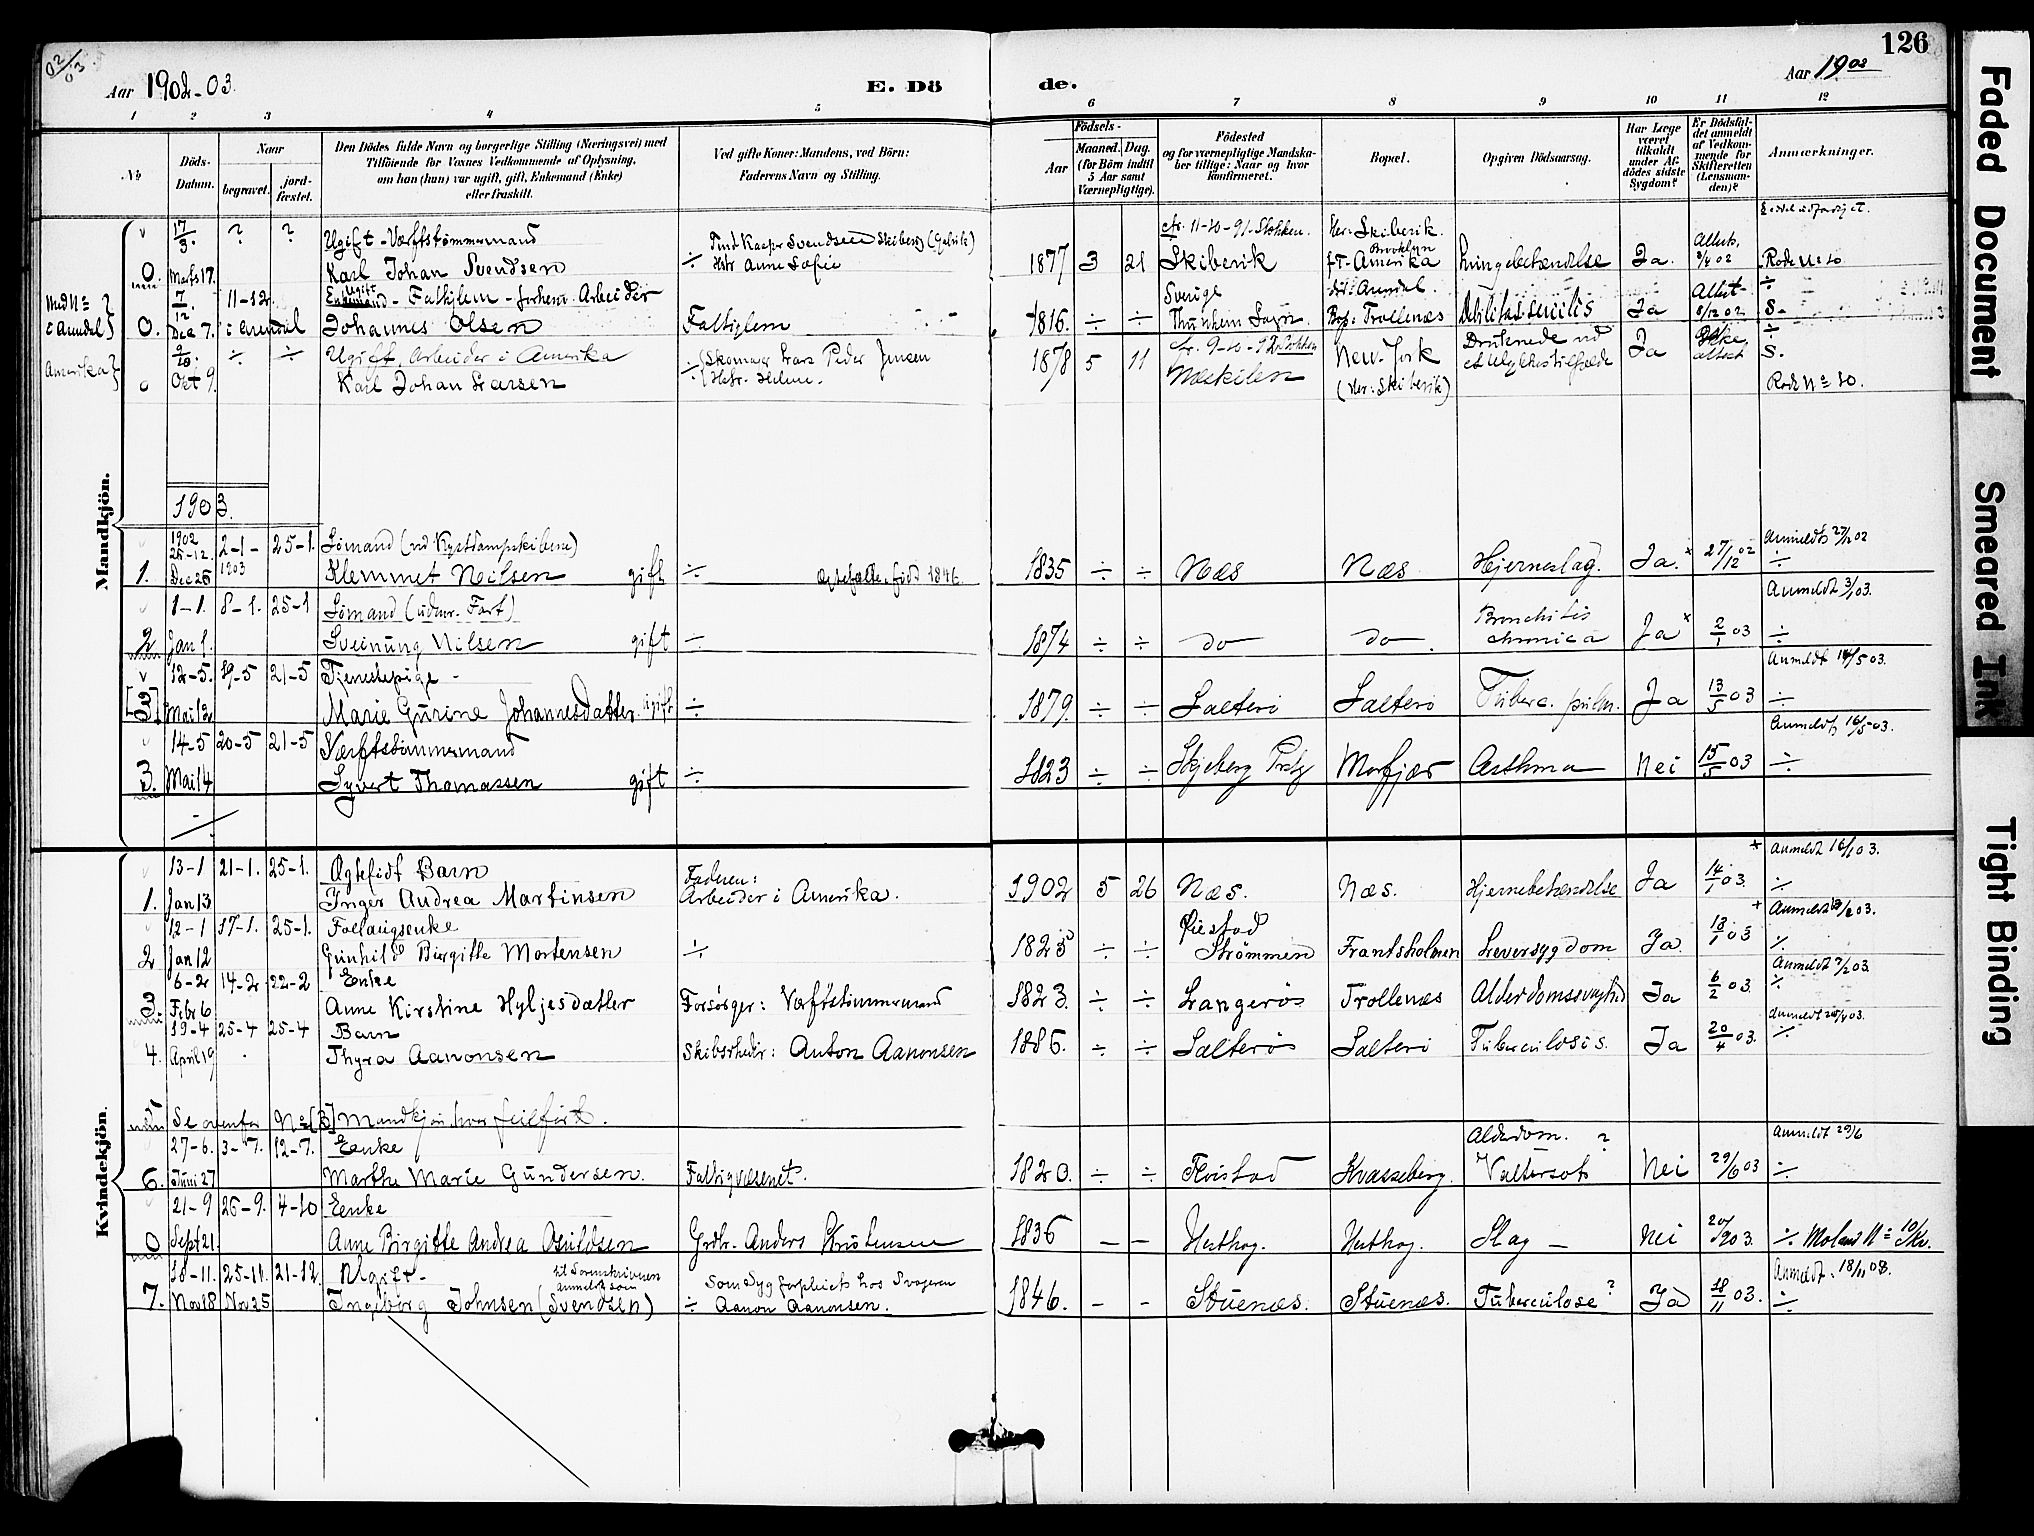 02/03
Aar 1902-03.
E. Dö
de.
Aar 1903
126
1 2 3 4 5 6 7 8 9 10 11 12
No
Döds-Datum.
Naar
begravet.
jord-fæstet.
Den Dödes fulde Navn og borgerlige Stilling (Næringsvei) med
Tilföiende for Voxnes Vedkommende af Oplysning,
om hun (han) var ugift, gift, Enkemand (Enke)
eller fraskilt.
Ved gifte Koner: Mandens, ved Börn:
Faderens Navn og Stilling.
Födsels-
Aar
Maaned. Dag.
(for Börn indtil
5 Aar samt
Værnepligtige).
Födested
og for værnepligtige Mandska-
ber tillige: Naar og hvor
Konfirmeret.
Bopæl.
Opgiven Dödsaarsag.
Har Læge
været
tilkaldt
under Af-
dödes sidste
Sygdom?
Er Dödsfal-
det anmeldt
af Vedkom-
mende for
Skifteretten
(Lensman-
den)?
Anmærkninger.
Mandkjön.
17/3. ? ? Ugift - Værftstømmermand
0. Marts 17. Karl Johan Svendsen ÷ Hstr Anne Sofie 1877 3 21 Skiberik f.T. Amerika Brooklyn Lungebetændelse Ja. Rode No 10
7/12 11-12. Ugift - Fattiglem - forhen Arbeider Sverige
0. Dec 7. i Arendal Johannes Olsen Fattiglem 1816. ÷ ÷ Bop: Trollenæs Debilitas senilis Ja 8/12 02. S.
Amerika
9/10. ÷ ÷ Ugift, Arbeider i Amerika
0 Okt 9. Karl Johan Larsen Skomager Lars Peder Jensen 1878 5 11 Næskilen New-York Druknede ved et Ulykkestilfælde Ja S.
Rode No 10.
1903.
1902 25-12. 2-1-1903 25-1. Sømand (ved Kystdampskibene) Anmeldt 27/12 02
1. Dec 25 Klemmet Neilsen gift ÷ Ægtefælle født 1846. 1835 ÷ ÷ Næs Næs Hjerneslag. Ja. 27/12 02 ÷
1-1. 8-1. 25-1 Sømand (udenr. Fart) Anmeldt 3/1 03.
2 Jan 1. Sveinung Nilsen gift ÷ 1874 ÷ ÷ do do Bronchitis chronica Ja 2/1 03 ÷
12-5. 19-5 21-5 Tjenestepige - Anmeldt 14/5 03.
[3] Mai 12 Marie Gurine Johannesdatter ugift ÷ 1879. ÷ ÷ Salterö Salterö Tuberc. pulm. Ja 13/5 03 ÷
14-5 20-5 21-5 Værftstömmermand Anmeldt 16/5-03.
3. Mai 14 Syvert Thomassen gift ÷ 1823 ÷ ÷ Skjeberg Prstg Morfjær Asthma Nei 15/5 03 ÷
Kvindekjön.
13-1 21-1. 25-1. Ægtefødt Barn Faderen: Anmeldt 16/1 03.
1. Jan 13 Inger Andrea Martinsen Arbeider i Amerika. 1902 5 26 Næs. Næs. Hjernebetændelse Ja 14/1 03. ÷
12-1 17-1. 25-1. Follaugsenke Øiestad
2 Jan 12 Gunhild Birgitte Mortensen ÷ 1825 ÷ ÷ Strømmen Frantsholmen Leversygdom Ja 13/1 03 ÷
6-2 14-2 22-2 Enke Anmeldt 7/2 03.
3 Febr 6 Anne Kirstine Hyljesdatter Forsørger: Værftstømmermand 1823. ÷ ÷ Langerøs Trollenæs Alderdomssvaghed Ja 6/2 03. ÷
19-4 25-4 25-4 Barn Anmeldt 25/4 03.
4. April 19 Thyra Aanonsen Skibsrheder: Anton Aanonsen 1886. ÷ ÷ Salterö Salterö Tuberculosis. Ja 20/4 03. ÷
5 Se ovenfor No [3] Mandkjön, hvor feilført.
27-6. 3-7. 12-7. Enke Alderdom. ? Anmeldt 29/6
6. Juni 27 Marthe Marie Gundersen. Fattigvæsenet. 1820. ÷ ÷ Flvistad Kvasseberg. Vattersot Nei 29/6 03 ÷
21-9 26-9. 4-10 Enke
0 Sept 21. Anne Birgitte Andrea Osuldsen Grdbr. Anders Kristensen 1836 - - Hesthag. Hesthag. Slag - Nei ÷ Moland No 10/Kv.
18-11. 25-11. 21-12. Ugift - til Sorenskriveren anmeldt som Som Syg forpleiet hos Svogeren Anmeldt 18/11 03.
7. Nov 18 Nov 25 Ingeborg Johnsen (Svendsen) ÷ Aanon Aanonsen. 1846. - - Stuenæs. Stuenæs. Tuberculose? Ja 18/11 03. ÷
Faded Document
Smeared Ink
Tight Binding